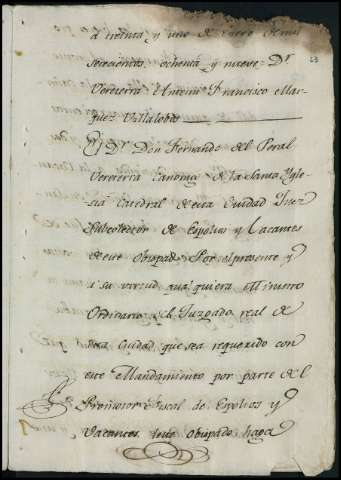 a treinta y uno de Enero de mil
setecientos, ochenta y nueve = Dr
Verecerra = Antemi Francisco Mar-
quez Villalobos
23
El Dr. Don Fernando del Poral
Verecerra Canonigo de la Santa Ygle-
sia Catedral de esta Ciudad Juez
Subcolector de Espolios y Vacantes
de este obispado = Por el presente y
a su virtud qualquiera Ministro
Ordinario del Juzgado real de
esta Ciudad que sea requerido con
este Mandamiento por parte del
Promotor Fiscal de Espolios y
Vacantes de este obispado, haga